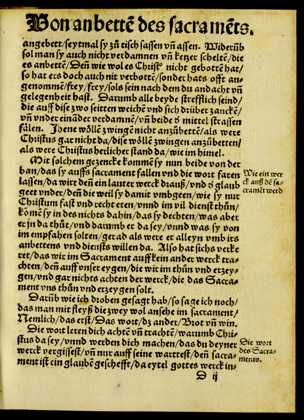 Von anbettē des sacramēts.
angebett/seytmal sy zů tisch sassen vn̄ assen. Widerūb
sol man sy auch nicht verdamnen vn̄ ketzer schelte/die
es anbettē/Den̄ wie wol es Christ⁹ nicht gebottē hat/
so hat ers doch auch nit verbottē/sonder hats offt an-
genommē/frey/frey/sols sein nach dem du andacht vn̄
gelegenheit hast. Darumb alle beyde strefflich seind/
die auff dise zwo seitten weichē vn̄ sich drüber zanckē/
vn̄ vnder eināder verdamnē/vn̄ beide d mittel strassen
fälen. Ihene wöllē zwingē nicht anzůbettē/als were
Christus gar nicht da/dise wöllē zwingen anzůbettēn/
als were Christus herlicher stand da/wie im himel.
Mit solchem gezencke kommē sy nun beide von der
ban/das sy auffs sacrament fallen vnd die wort faren
lassen/da wirt den̄ ein lauter werck drauß/vnd d glaub
geet vnder/den̄ die weil sy damit vmbgeen/wie sy nur
Christum fast vnd recht eren/vnnd im vil dienst thůn/
kōmē sy in des nichts dahin/das sy dechten/was aber
er jn da thůe/vnd darumb er da sey/vnnd was sy von
im empfahen solten/gerad als were er alleyn vmb irs
anbettens vnd diensts willen da. Also hat sichs verke
ret/das wir im Sacrament auff kein ander werck tra-
chten/den̄ auff vnser eygen/die wir im thůn vnd erzey-
gen/vnd gar nichts achten der werck/die das Sacra-
ment vns thůn vnd erzeygen solt.
Darüb wie ich droben gesagt hab/so sage ich noch/
das man mit fleyß die zwey wol ansehe im sacrament/
Nemlich/das erst/Das wort/dz ander/Brot vn̄ win.
Die wort leren dich achtē vn̄ trachtē/warumb Chri-
stus da sey/vnnd werden dich machen/das du deyner
werck vergissest/vn̄ nur auff seine wartest/den̄ sacra-
ment ist ein glaubēs geschefft/da eytel gottes werck in-
D ij
Wie ein wer
ck auß dē sa-
cramēt werd
Die wort
des Sacra-
ments.